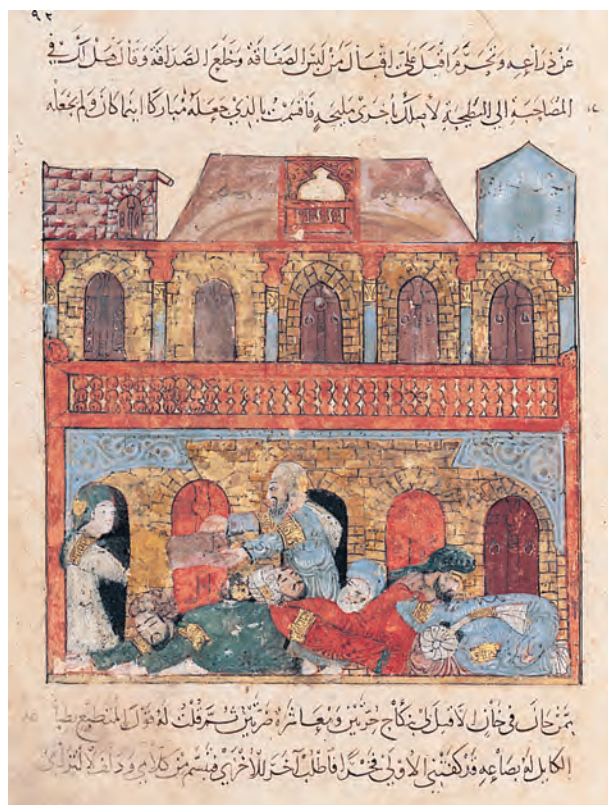 ٩٢
عن ذراعه وتحزم اقبل على اقبال من لبس الصفاقة وخلع الصداقة وقال هل لك في
المصاحبة الى البطيحة لاصلك باخرى مليحة فاقسمت بالذي جعله مباركا اينما كان ولم يجعله
ممن خان في خان لا قبل لي بنكاح حرتين ومعاشرة ضرتين ثم قلت له قول المتطبع بطبا
الكايل له بصاعه قد كفتني الاولى فخرا فاطلب آخر للاخرى فتبسم من كلامي ودلف لالتزامي